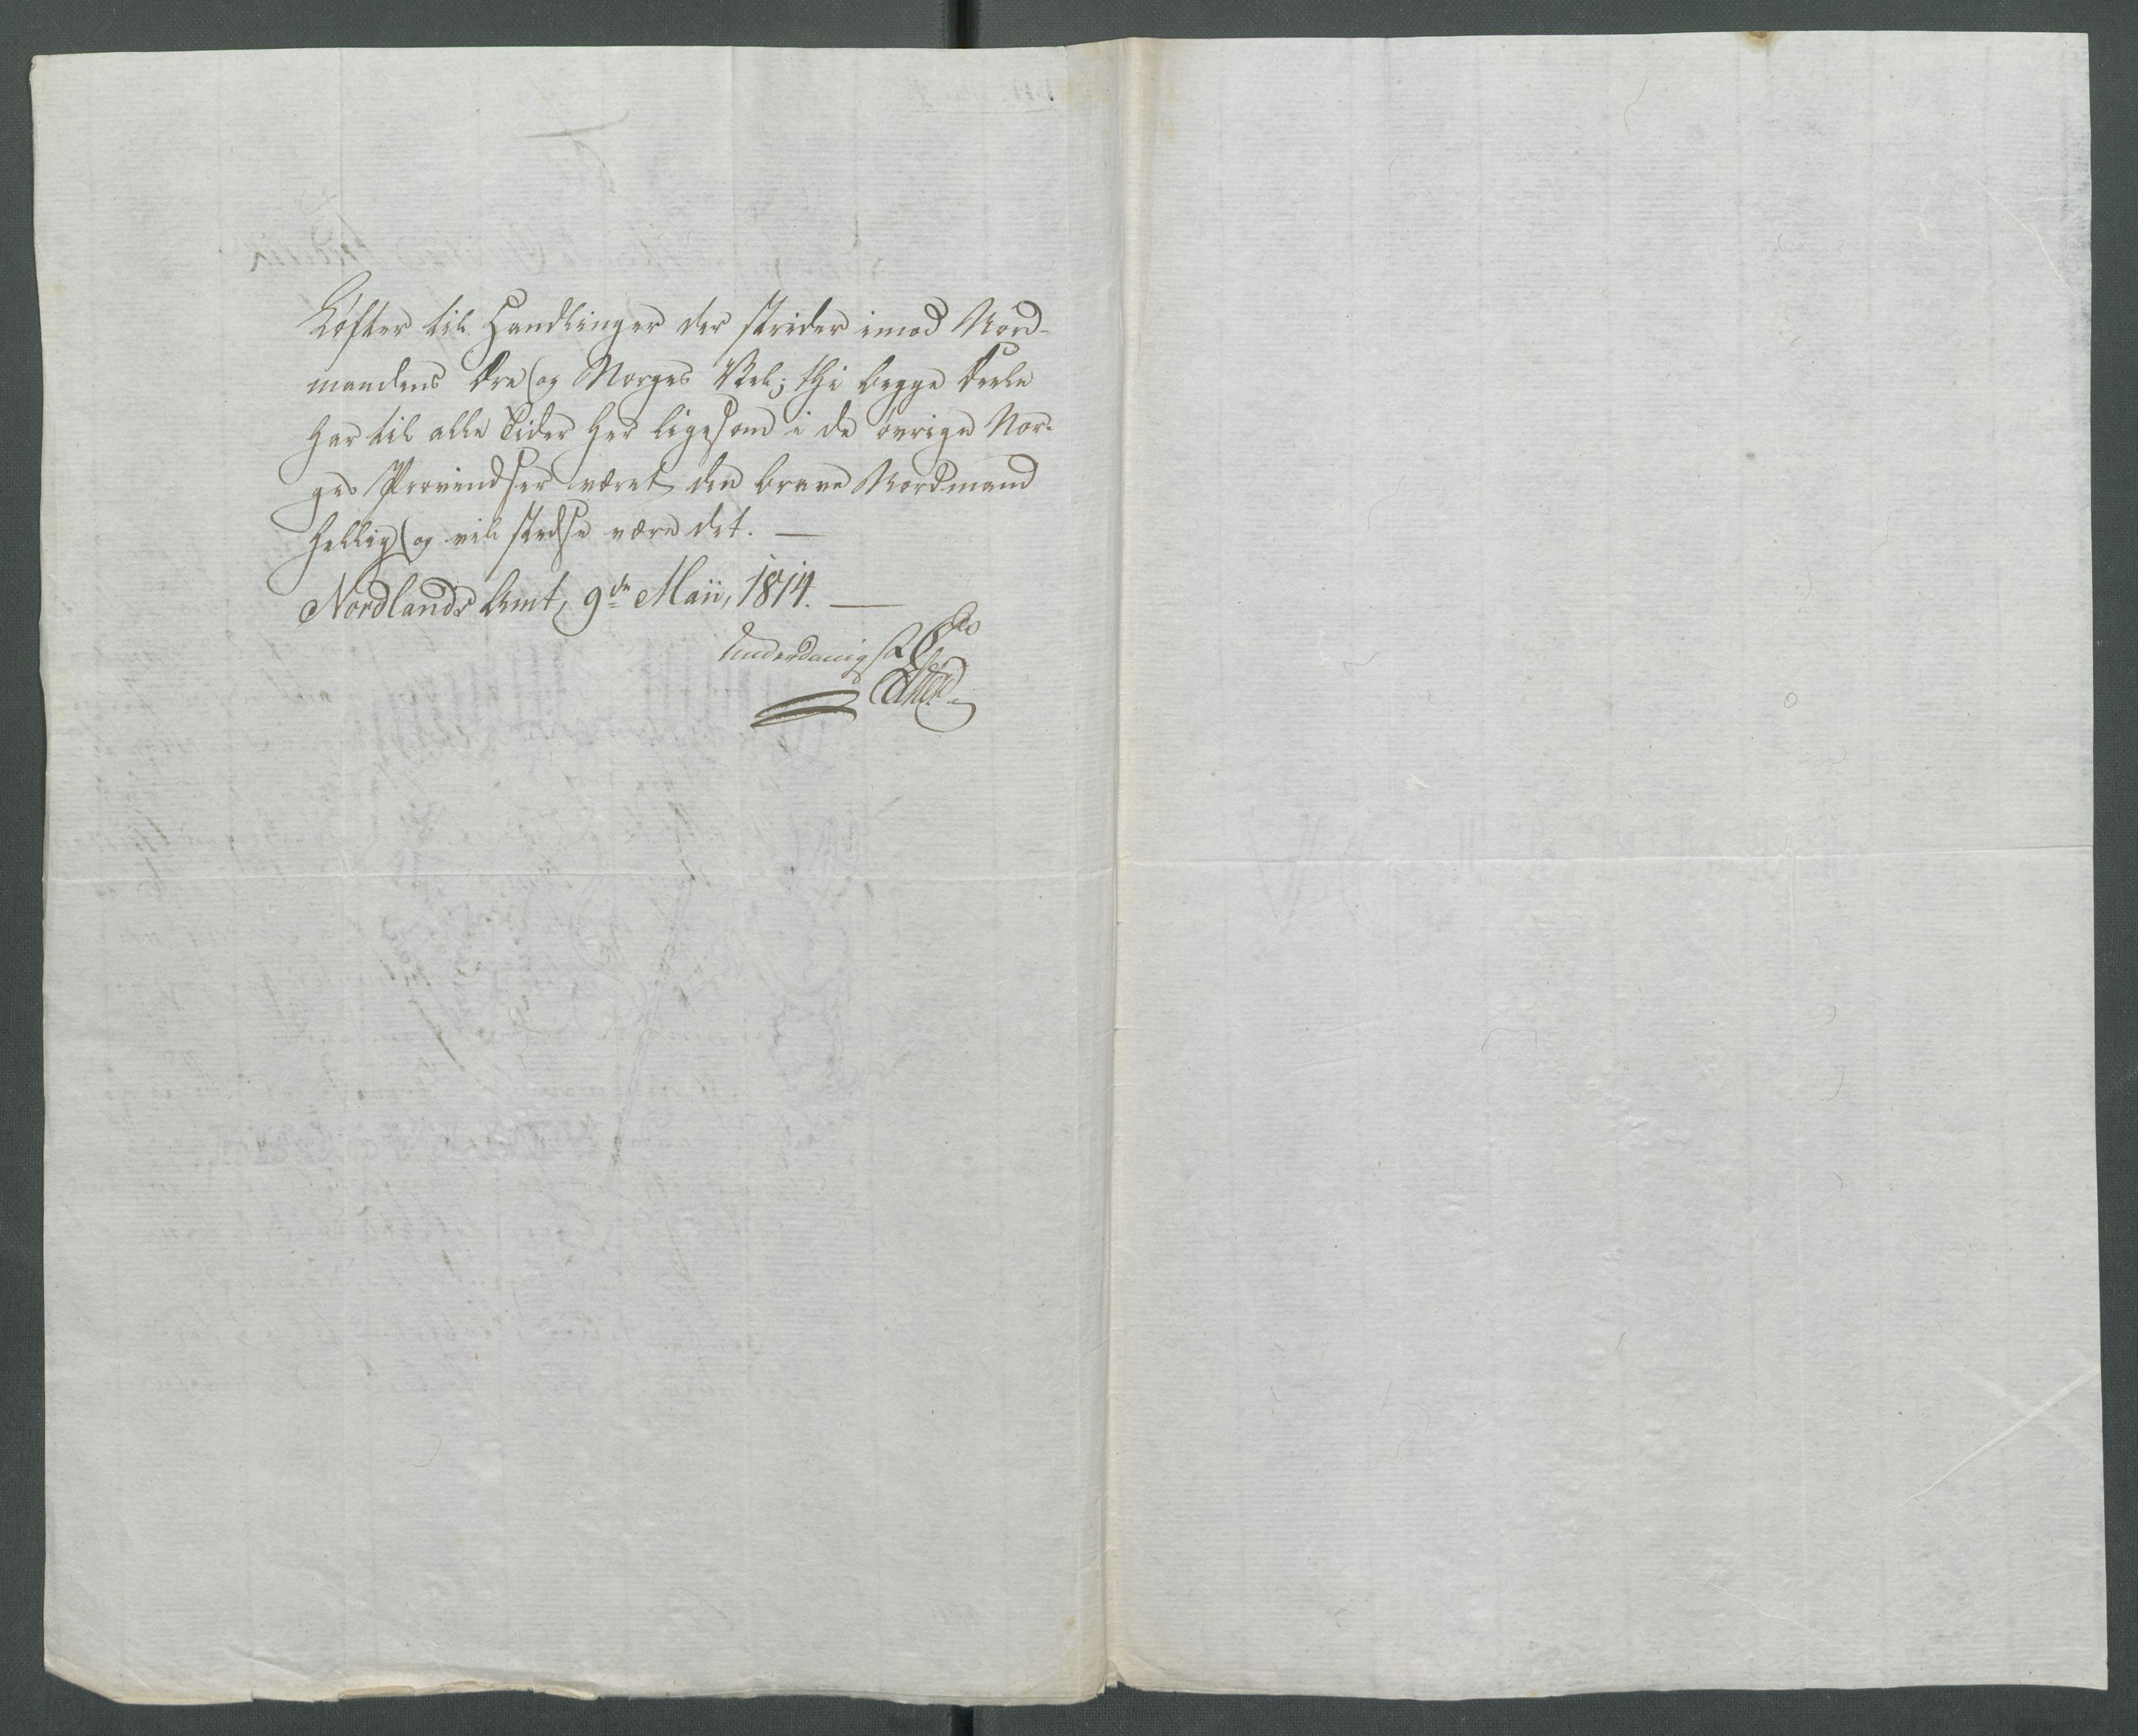 Løfter til Handlinger der strider imod Nord-
mandens Ære og Norges Vel; thi begge Deele
har til alle Tider her ligesom i de øvrige Nor-
ges Provindser været den brave Nordmand
hellig og vil stedse være det. —
Nordlands Amt, 9de Maii, 1814. —
Underdanigst